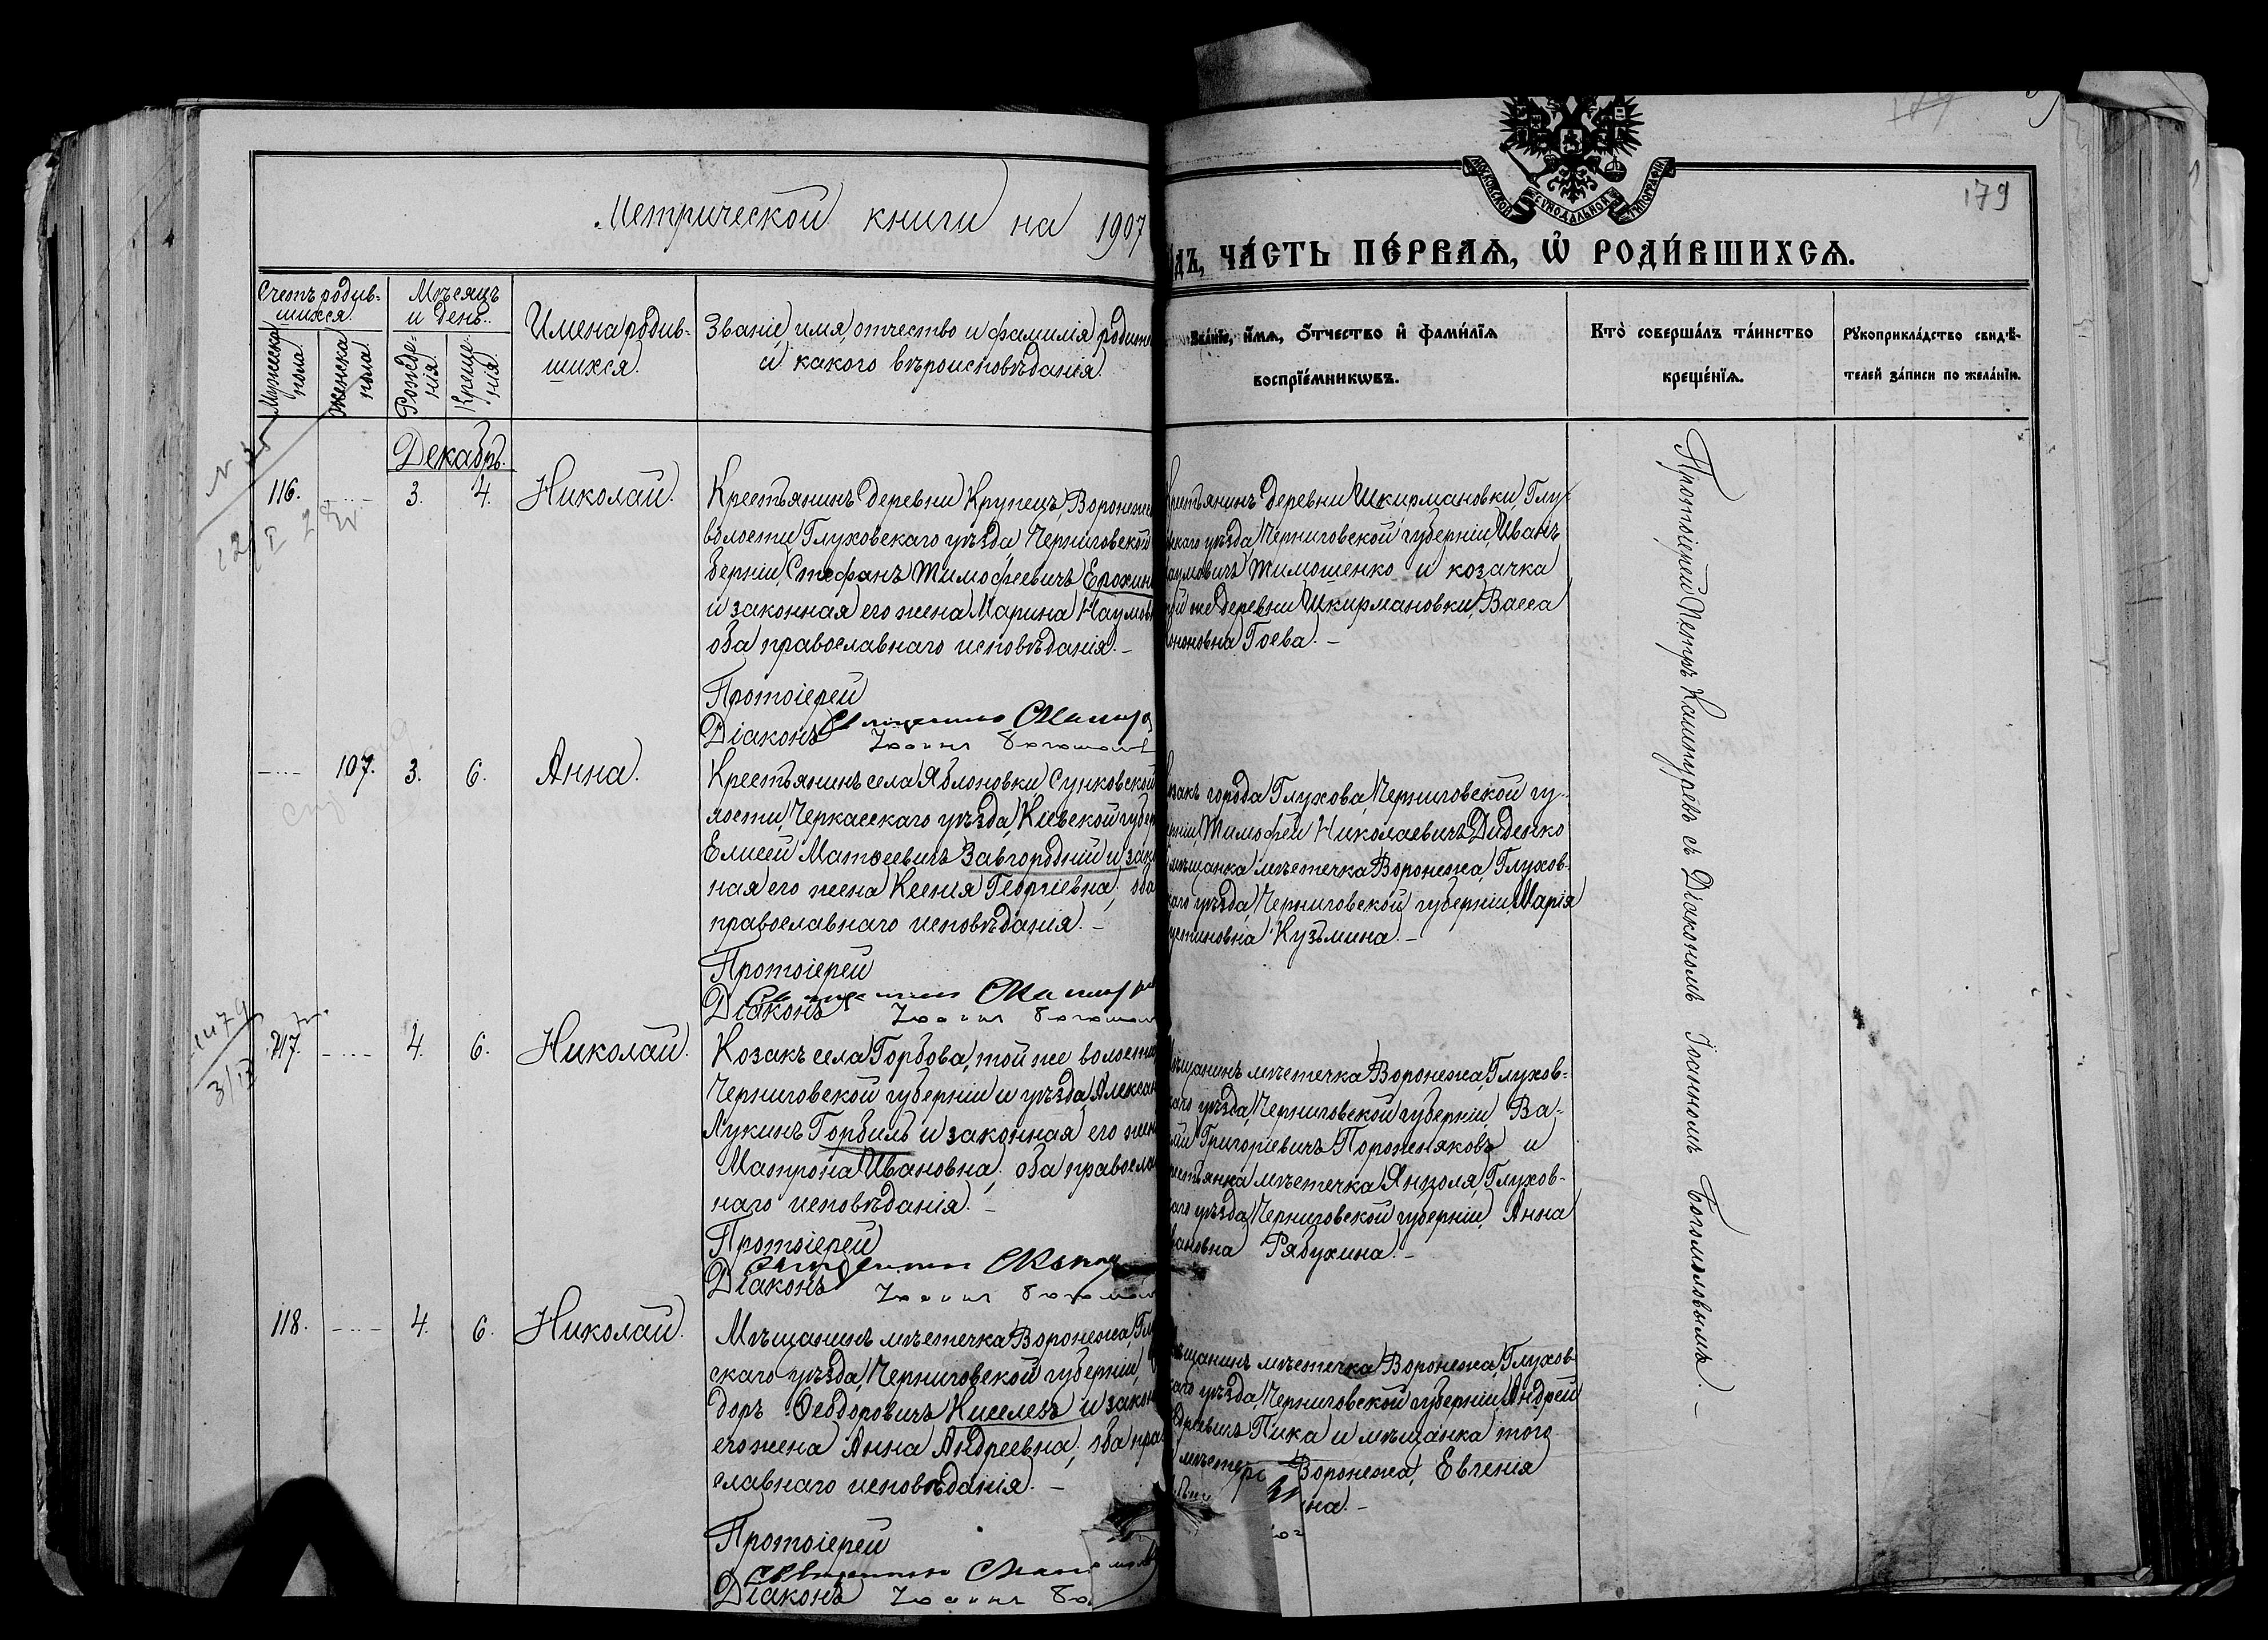 Метрической книги на 1907
дъ, ЧА́СТЬ ПЕ́РВАѦ, Ѡ҆ РОДИ́ВШИХСѦ.
МОСКОВСКОЙ СѴНОДАЛЬНОЙ ТИПОГРАФІИ
179
Счетъ родив-
шихся.
Мужеска
пола.
Женска
пола.
Мѣсяцъ
и день.
Рожде-
нія.
Креще-
нія.
Имена родив-
шихся.
Званіе, имя, отчество и фамилія родит
и какого вѣроисповѣданія.
Зва́нїе, и҆́мѧ, ѻ҆́тчество и҆ фами́лїѧ
воспрїе́мникѡвъ.
Кто̀ соверша́лъ та́инство
креще́нїѧ.
Рꙋкоприкла́дство свидѣ́-
телей за́писи по жела́нїю.
Декабрь.
116. 3. 4. Николай.
Крестьянинъ деревни Крупецъ, Воронеже
волости, Глуховскаго уѣзда Черниговской
берніи, Стефанъ Тимофеевичъ Ерохин
и законная его жена Марина Наумов
оба православнаго исповѣданія. –
Протоіерей
Діаконъ
рестьянинъ деревни Шкирмановки, Глу-
скаго уѣзда, Черниговской губерніи, Иванъ
аумовичъ Тимошенко и козачка
ой же деревни Шкирмановки, Васса
ононовна Гоева. –
107. 3. 6. Анна.
Крестьянинъ села Яблоновки, Сунковской
лости, Черкасскаго уѣзда, Кіевской губер
Елисей Матвеевичъ Завгородній и зак
ная его жена Ксенія Георгіевна; оба
православнаго исповѣданія. –
Протоіерей
Діаконъ
озакъ города Глухова, Черниговской гу-
рніи, Тимофей Николаевичъ Диденко
мѣщанка мѣстечка Воронежа, Глухов-
каго уѣзда, Черниговской губерніи, Марія
устиновна Кузьмина. –
117. 4. 6. Николай.
Козакъ села Горбова, той же волости
Черниговской губерніи и уѣзда, Алексан
Лукинъ Горбиль и законная его жен
Матрона Ивановна; оба правосла
наго исповѣданія. –
Протоіерей
Діаконъ
ѣщанинъ мѣстечка Воронежа, Глухов-
каго уѣзда, Черниговской губерніи, Ва-
ілій Григоріевичъ Пороженяковъ и
рестьянка мѣстечка Янполя, Глухов-
каго уѣзда, Черниговской губерніи, Анна
вановна Рябухина. –
118. 4. 6. Николай.
Мѣщанинъ мѣстечка Воронежа, Глу
скаго уѣзда, Черниговской губерніи,
доръ Ѳеодоровичъ Киселевъ и закон
его жена Анна Андреевна; оба пра
славнаго исповѣданія. –
Протоіерей
Діаконъ
ѣщанинъ мѣстечка Воронежа, Глухов-
каго уѣзда, Черниговской губерніи, Андрей
дреевичъ Пика и мѣщанка того
мѣстеч Воронежа, Евгенія
на. –
Протоіерей Петръ Каштуревъ съ Діакономъ Іоанномъ Богомоловымъ. –